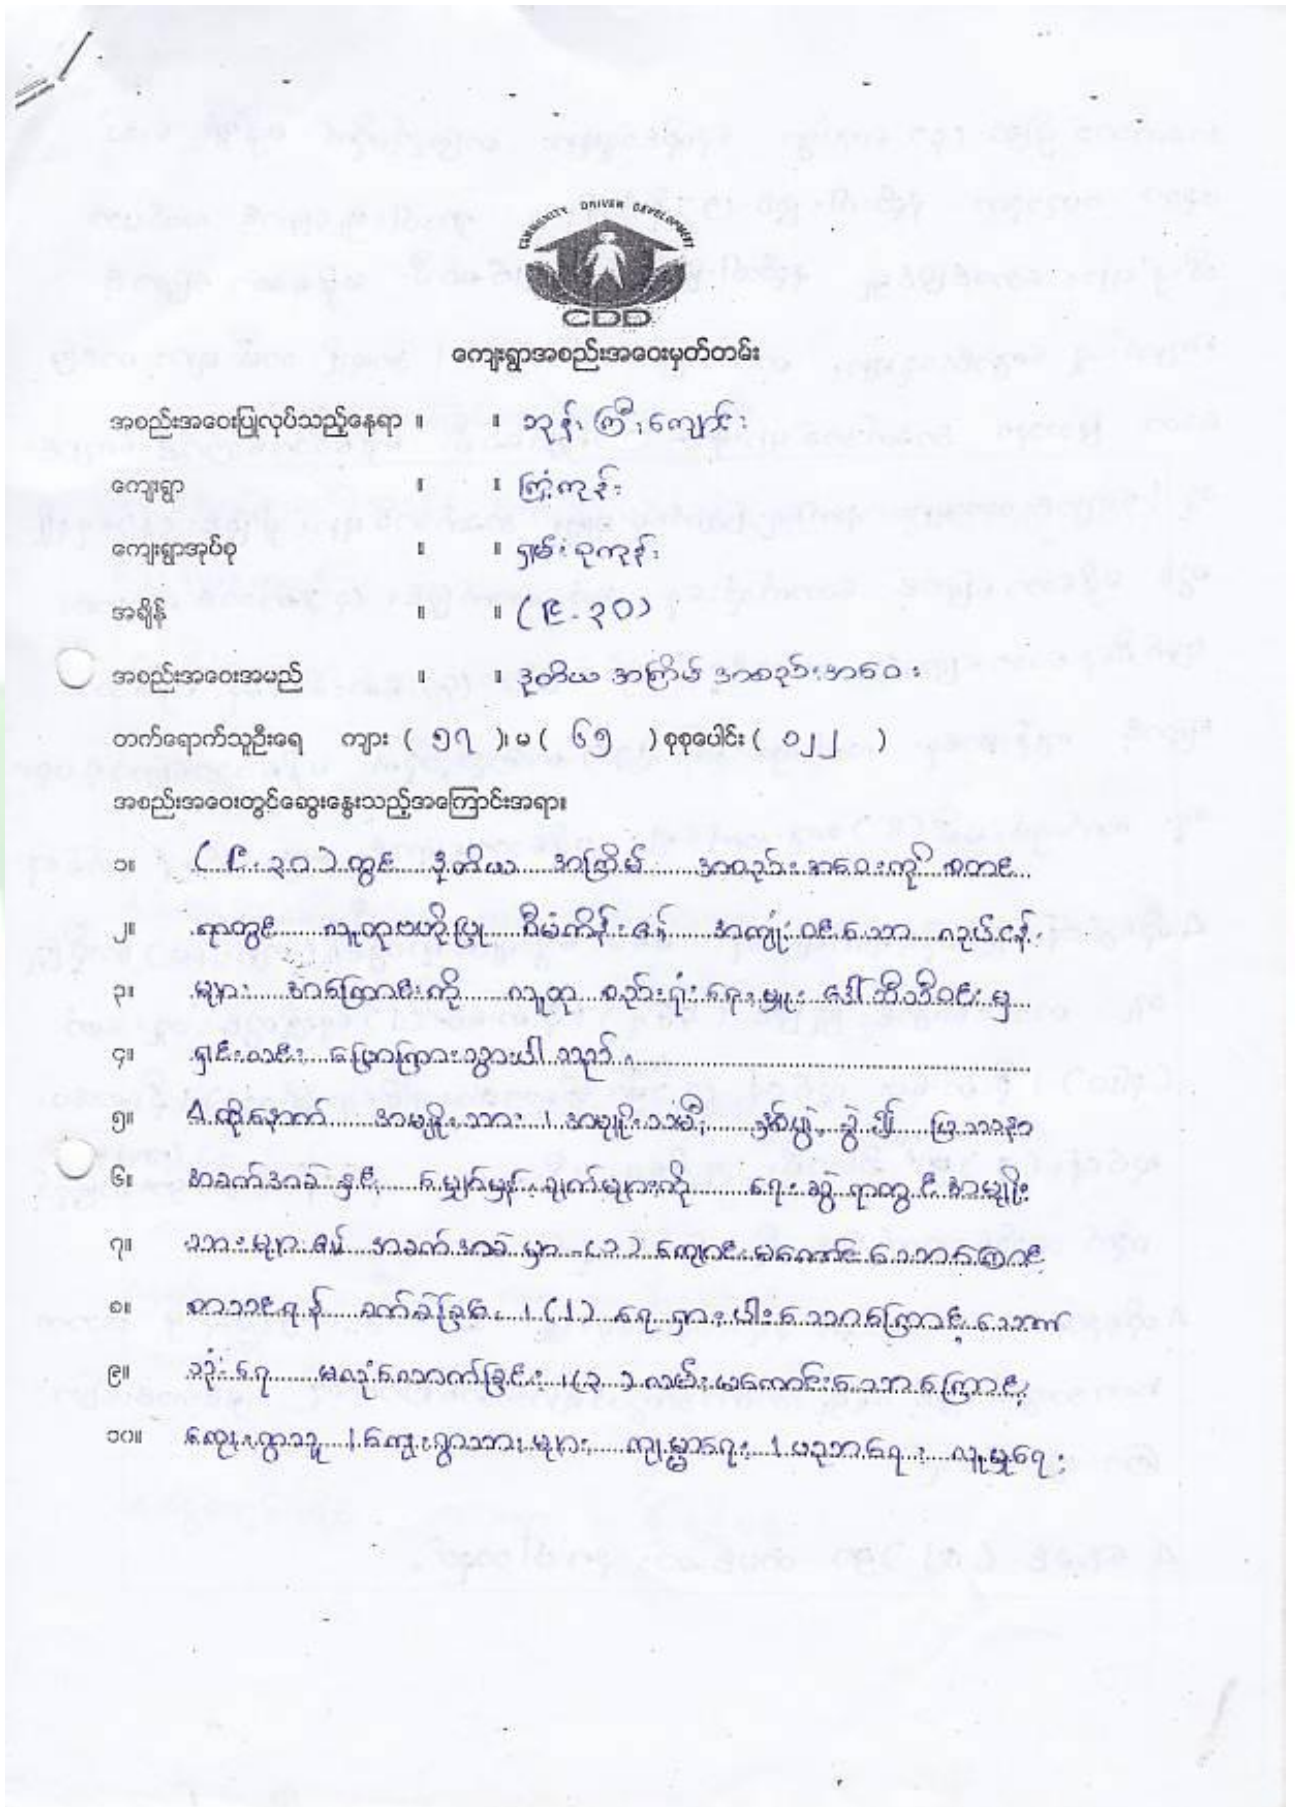 COMMUNITY DRIVEN DEVELOPMENT
CDD
ကျေးရွာအစည်းအဝေးမှတ်တမ်း
အစည်းအဝေးပြုလုပ်သည့်နေရာ ။ ။ ဘုန်းကြီးကျောင်း
ကျေးရွာ ။ ။ ကြံကုန်း
ကျေးရွာအုပ်စု ။ ။ ရှမ်းစုကုန်း
အချိန် ။ ။ (၉.၃၀)
အစည်းအဝေးအမည် ။ ။ ဒုတိယ အကြိမ် အစည်းအဝေး
တက်ရောက်သူဦးရေ ကျား ( ၅၇ )၊ မ ( ၆၅ ) စုစုပေါင်း ( ၁၂၂ )
အစည်းအဝေးတွင်ဆွေးနွေးသည့်အကြောင်းအရာ။
၁။ (၉.၃၀) တွင် ဒုတိယ အကြိမ် အစည်းအဝေးကို စတင်
၂။ ရာတွင် လူထုဗဟိုပြု စီမံကိန်း၏ အကျုံးဝင်သော လုပ်ငန်း
၃။ များ အကြောင်းကို လူထု စည်းရုံးရေးမှူး ဒေါ်သီသီဝင်းမှ
၄။ ရှင်းလင်း ပြောကြားသွားပါ သည်.
၅။ ထို့နောက် အမျိုးသား ၊ အမျိုးသမီး နှစ်ဖွဲ့ ခွဲ၍ ပြဿနာ
၆။ အခက်အခဲနှင့် မျှော်မှန်းချက်များကို ရေးဆွဲရာတွင် အမျိုး
၇။ သားများ၏ အခက်အခဲမှာ (၁) ကျောင်းမကောင်းသောကြောင့်
၈။ စာသင်ရန် ခက်ခဲခြင်း ၊ (၂) ရေရှားပါးသောကြောင့် သောက်
၉။ သုံးရေ မလုံလောက်ခြင်း ၊ (၃) လမ်းမကောင်းသောကြောင့်
၁၀။ ကျေးရွာသူ ၊ ကျေးရွာသားများ ကျန်းမာရေး ၊ ပညာရေး လူမှုရေး